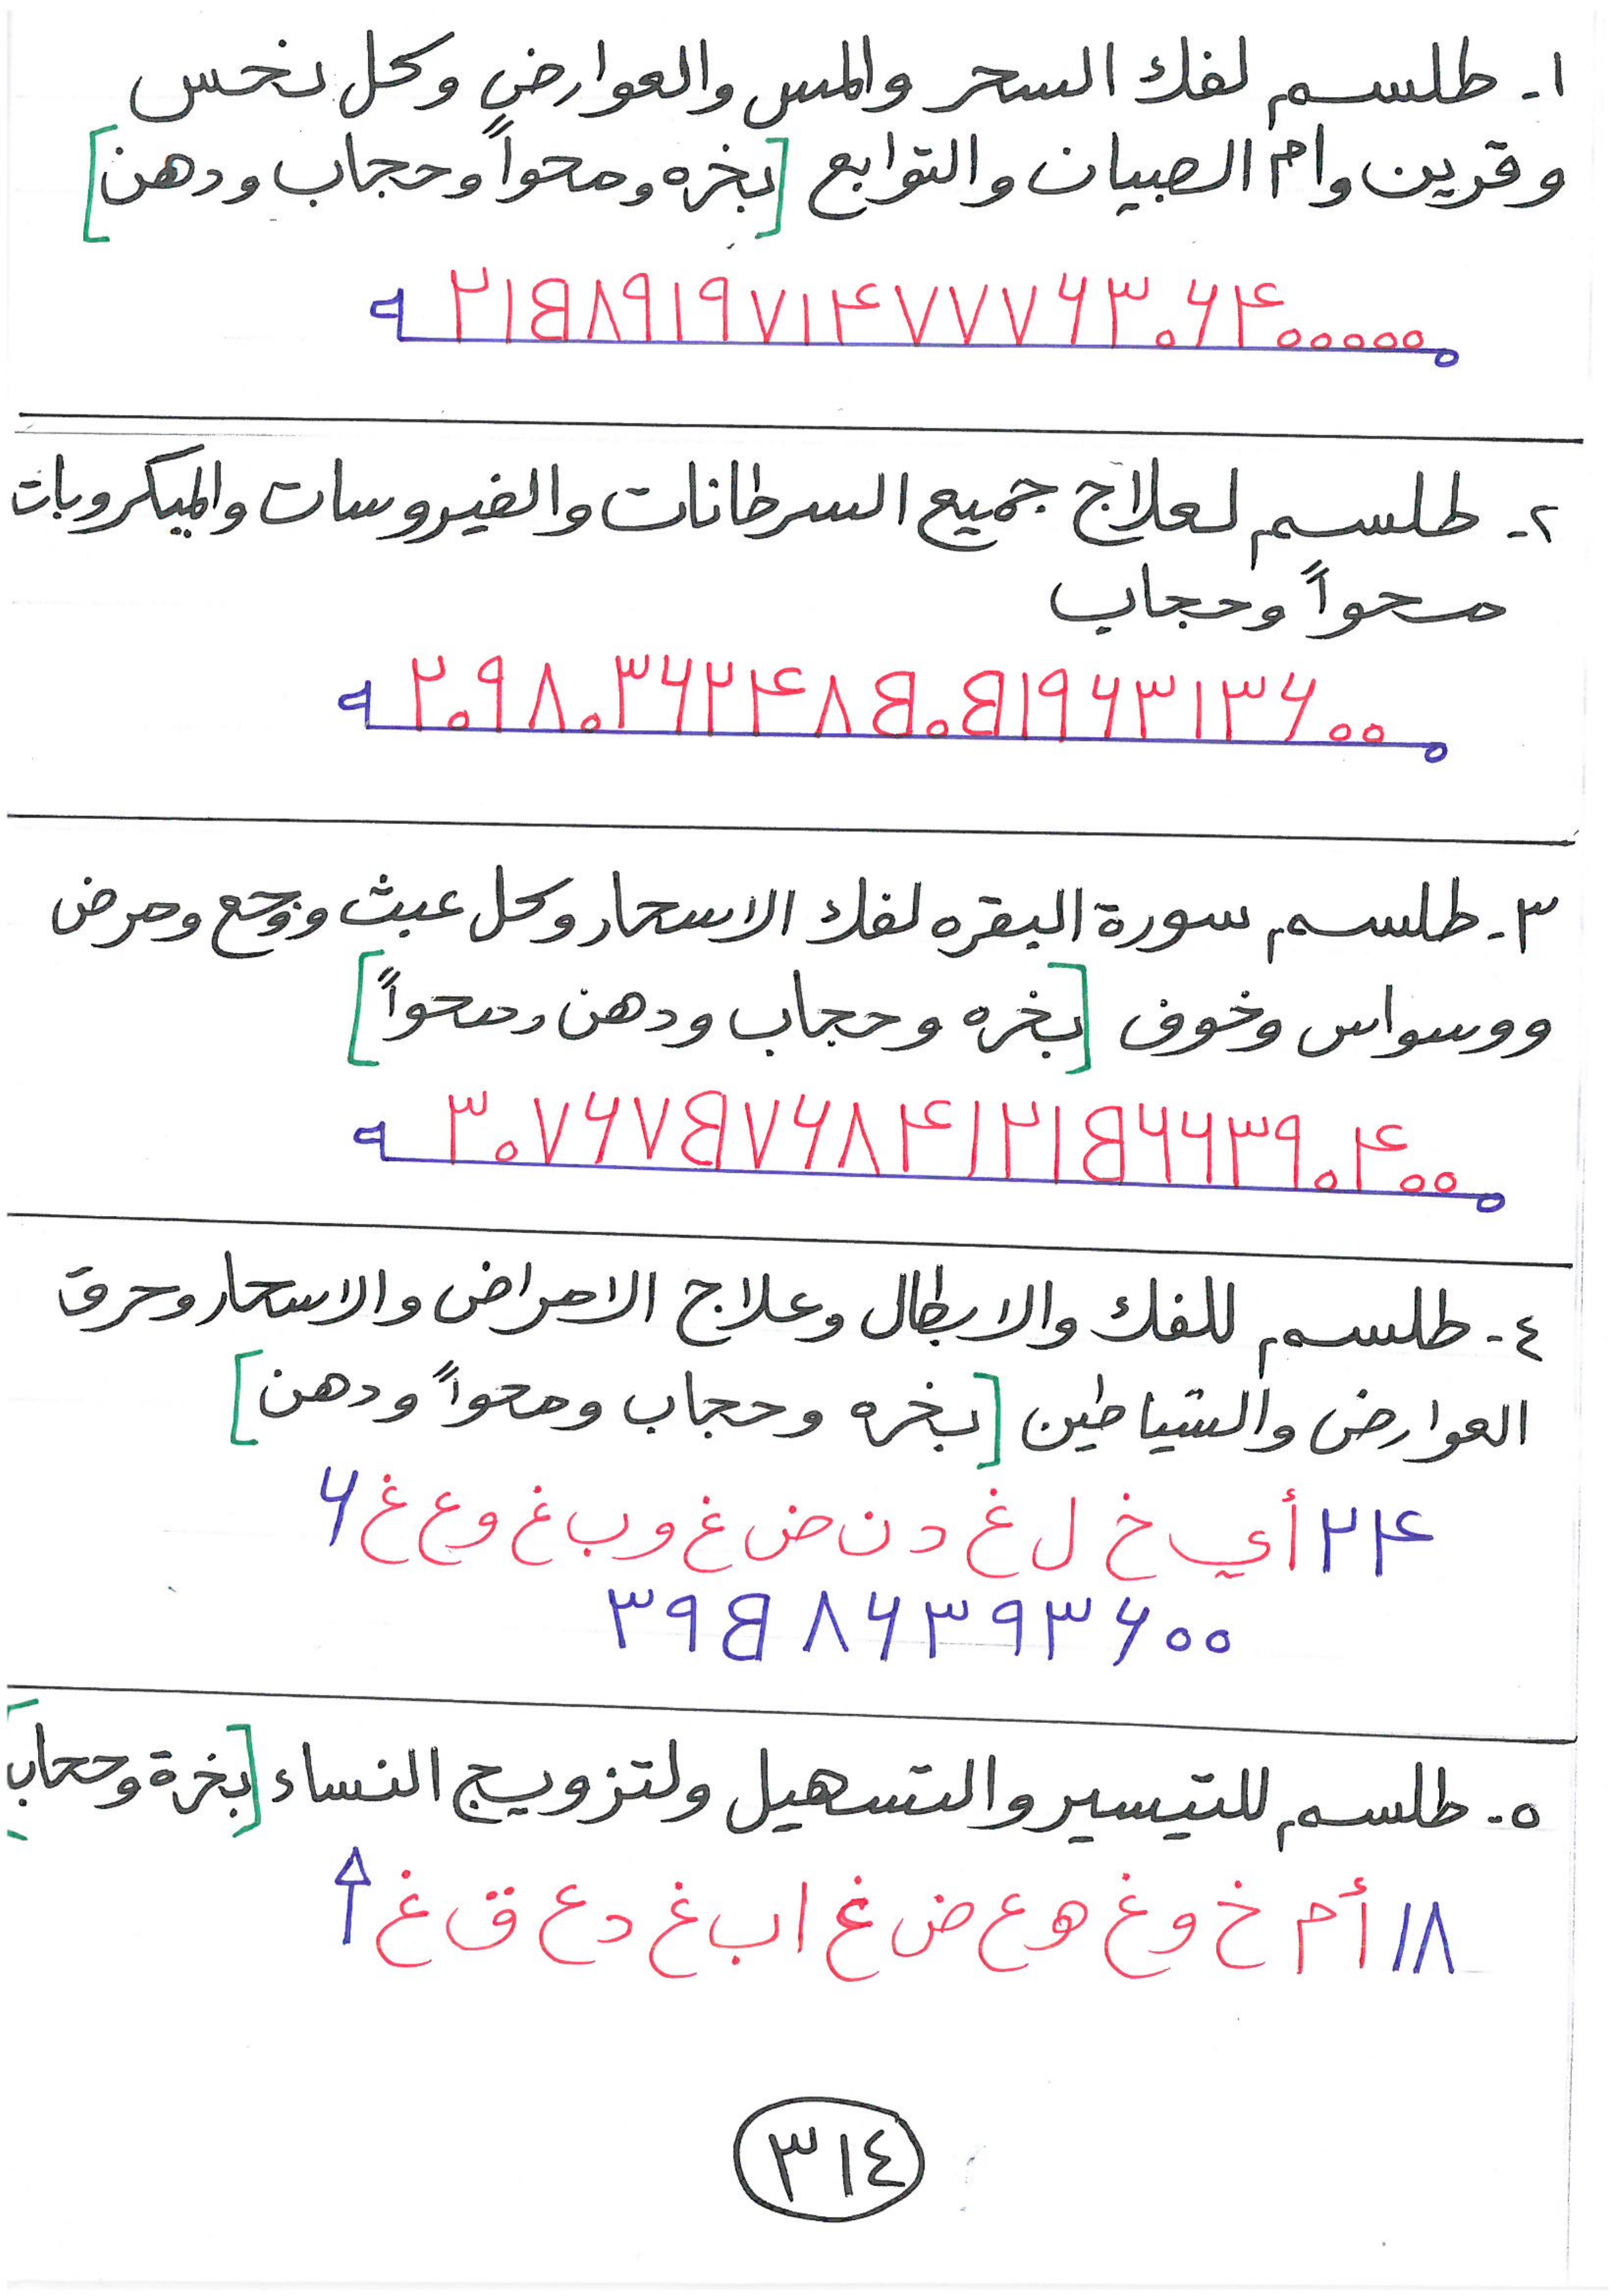 ١- طلسم لفك السحر والمس والعوارض وكل نحس
وقرين وام الصبيان والتوابع [بخره ومحواً وحجاب ودهن]
٢١٥٨٩١٩٧١۴٧٧٧۶٣٠۶۴٠٠٠٠٠
٢- طلسم لعلاج جميع السرطانات والفيروسات والميكروبات
محواً وحجاب
٢٠٩٨٠٣۶٢۴٨٥٠٥١٩۶٣١٣۶٠٠
٣- طلسم سورة البقره لفك الاسحار وكل عبث ووجع ومرض
ووسواس وخوف [بخره وحجاب ودهن ومحواً]
٣٠٧۶٧٥٧۶٨۴١٢١٥۶۶٣٩٠۴٠٠
٤- طلسم للفك والابطال وعلاج الامراض والاسحار وحرق
العوارض والشياطين [بخره وحجاب ومحواً ودهن]
٢۴ أي خ ل غ د ن ض غ و ب غ و ع غ ۶
٣٩٥٨۶٣٩٣۶٠٠
٥- طلسم للتيسير والتسهيل ولتزويج النساء [بخرة وحجاب]
١٨ أ م خ و غ ه و ع ض غ ا ب غ د ع ق غ ↑
٣١٤